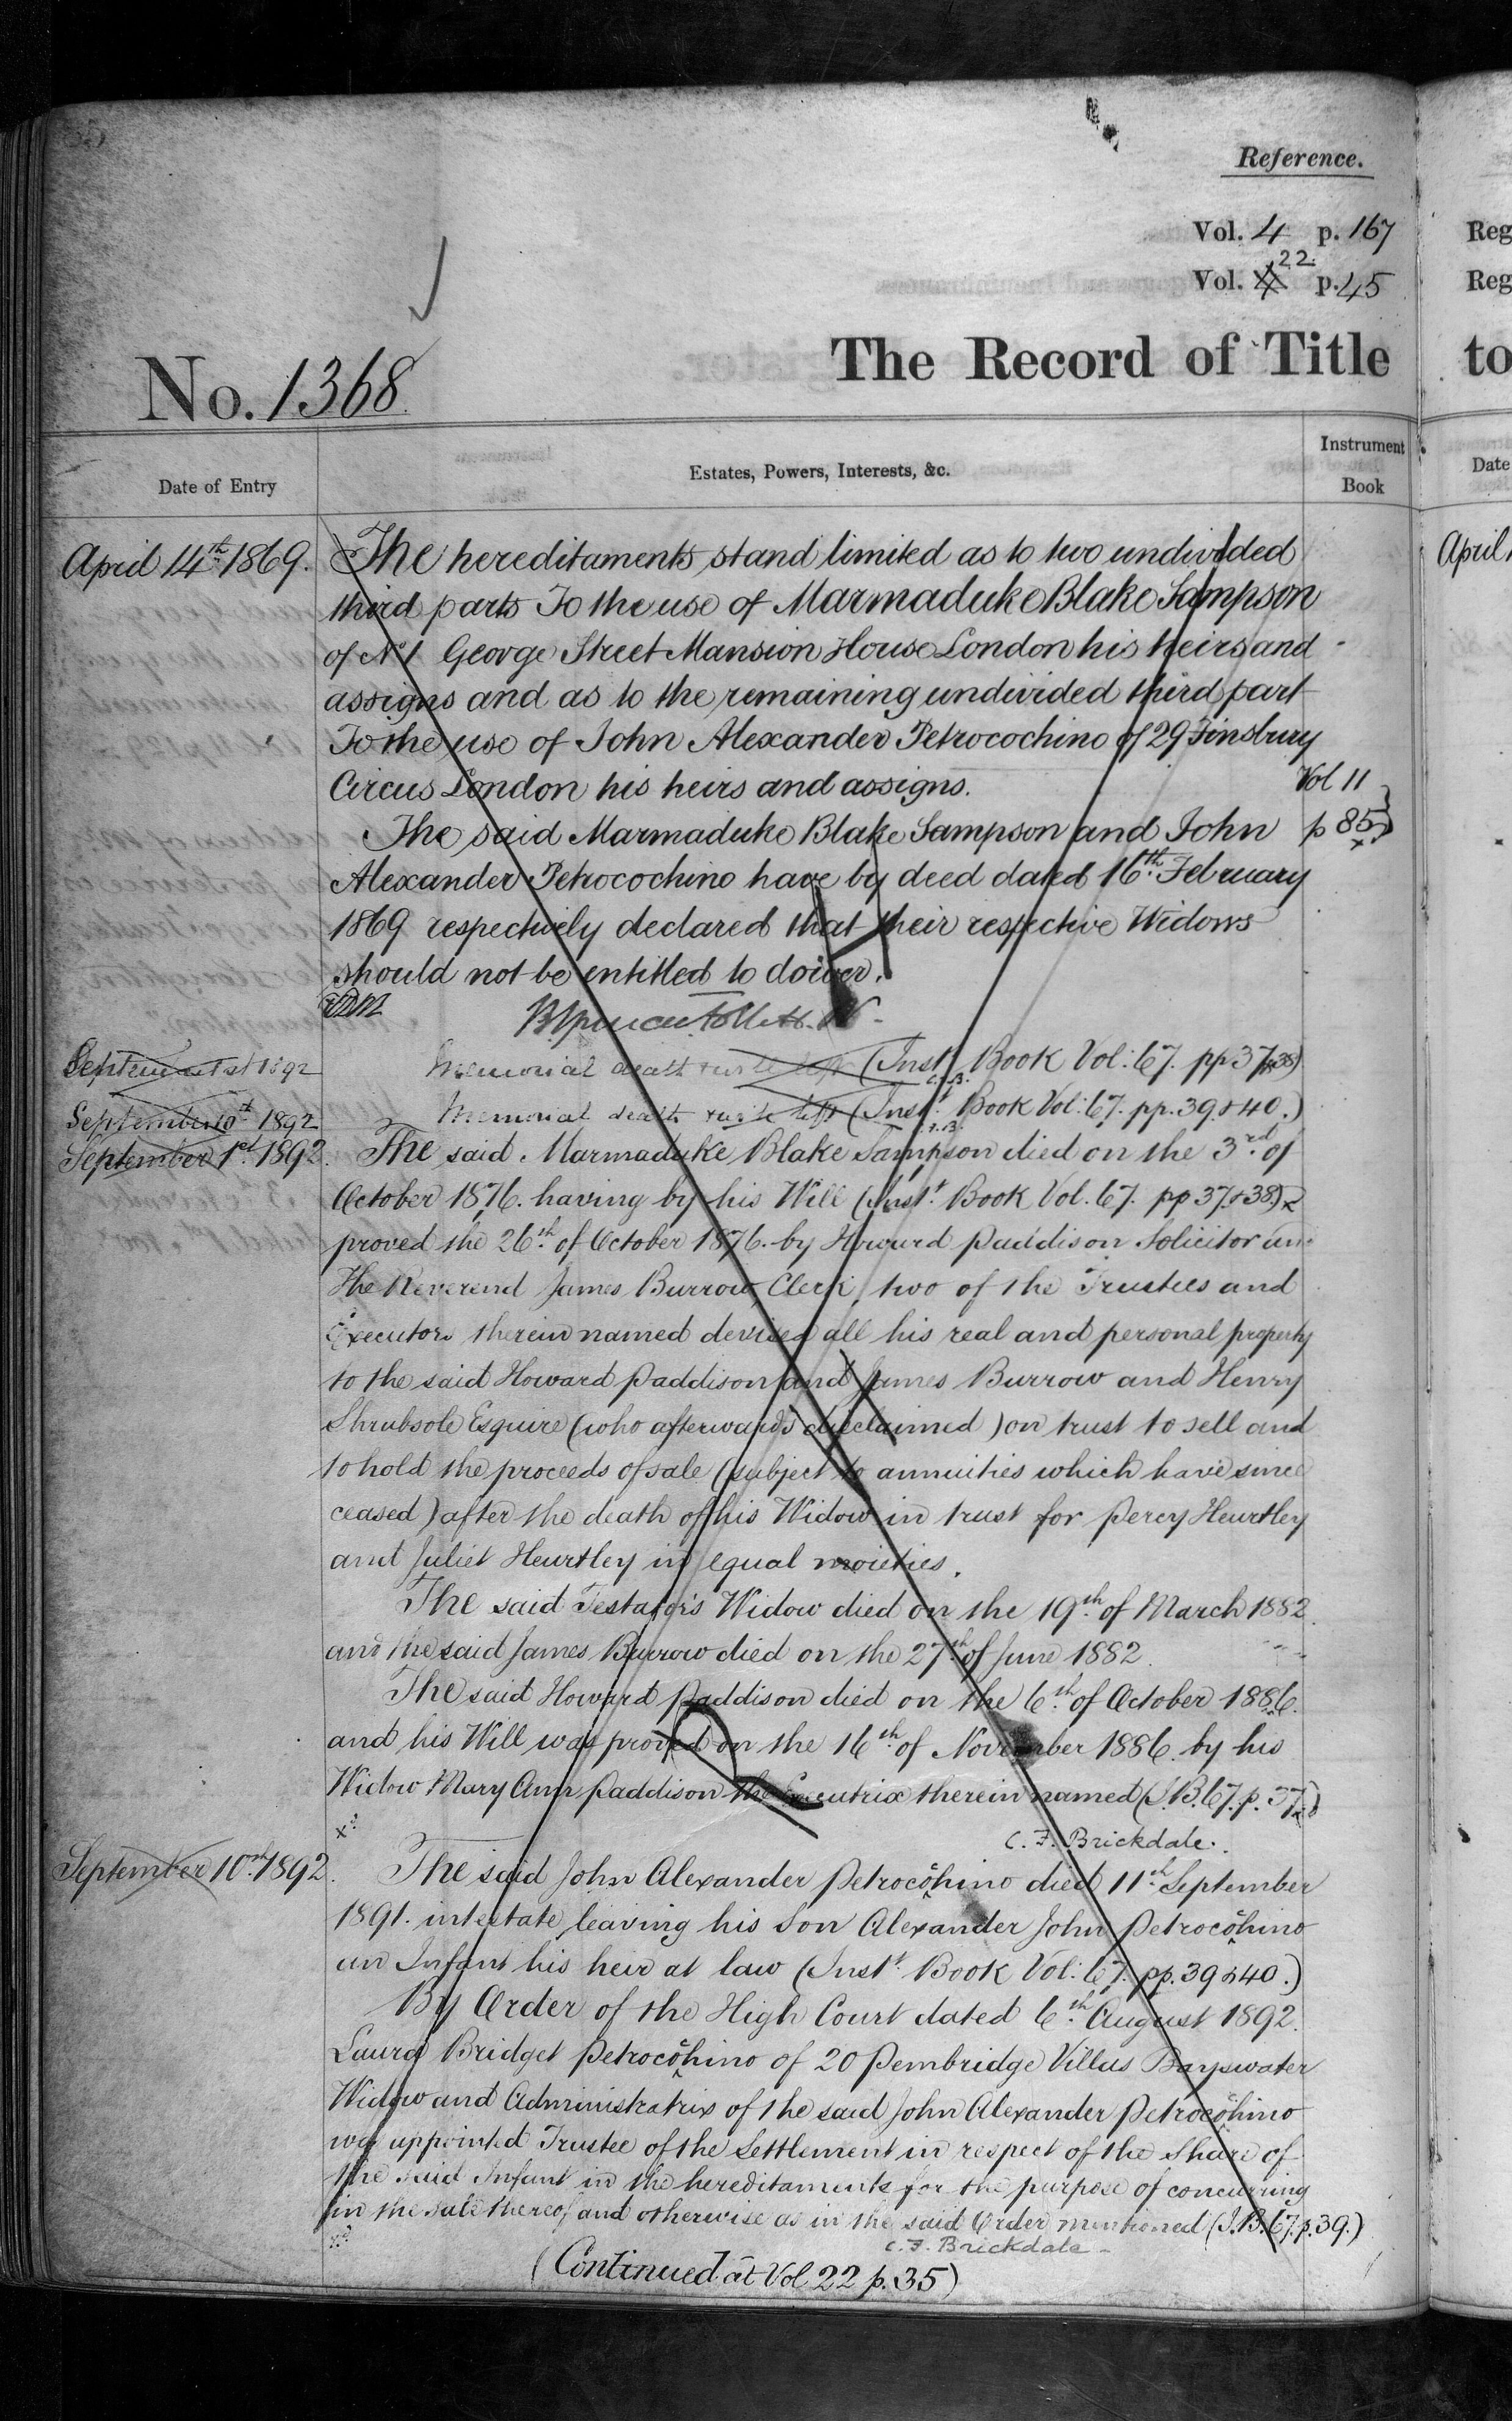 Reference.
Vol. 4 p. 167
Vol. 22 p. 45
No. 1368
The Record of Title
Date of Entry
Estates, Powers, Interests, &c.
Instrument Book
April 14th 1869.
The hereditaments stand limited as to two undivided
third parts To the use of Marmaduke Blake Sampson
of No 1 George Street Mansion House London his heirs and
assigns and as to the remaining undivided third part
To the use of John Alexander Petrocochino of 29 Finsbury
Circus London his heirs and assigns.
Vol 11
The said Marmaduke Blake Sampson and John
p 85
Alexander Petrocochino have by deed dated 16th February
1869 respectively declared that their respective Widows
should not be entitled to dower.
September 1st 1892
Memorial death (Inst Book Vol: 67. pp 37 & 38)
September 10th 1892
Memorial death (Inst. Book Vol: 67. pp. 39 & 40.)
September 1st 1892.
The said Marmaduke Blake Sampson died on the 3rd of
October 1876. having by his Will (Inst. Book Vol. 67. pp 37 & 38)
proved the 26th of October 1876. by Howard Paddison Solicitor and
The Reverend James Burrow, Clerk, two of the Trustees and
Executors therein named devised all his real and personal property
to the said Howard Paddison and James Burrow and Henry
Shrubsole Esquire (who afterwards disclaimed) on trust to sell and
to hold the proceeds of sale (subject to annuities which have since
ceased) after the death of his Widow in trust for Percy Heurtley
and Juliet Heurtley in equal moieties.
The said Testator's Widow died on the 19th of March 1882
and the said James Burrow died on the 27th of June 1882.
The said Howard Paddison died on the 6th of October 1886.
and his Will was proved on the 16th of November 1886. by his
Widow Mary Ann Paddison the Executrix therein named (I.B. 67. p. 37.)
C. F. Brickdale.
September 10th 1892.
The said John Alexander Petrocochino died 11th September
1891. intestate leaving his son Alexander John Petrocochino
an Infant his heir at law (Inst. Book Vol: 67. pp. 39 & 40.)
By Order of the High Court dated 6th August 1892.
Laura Bridget Petrocochino of 20 Pembridge Villas Bayswater
Widow and Administratrix of the said John Alexander Petrocochino
was appointed Trustee of the Settlement in respect of the Share of
the said Infant in the hereditaments for the purpose of concurring
in the sale thereof and otherwise as in the said Order mentioned (I.B. 67. p. 39.)
C. F. Brickdale
(Continued at Vol 22 p. 35)
Reg
Reg
to
Date
April